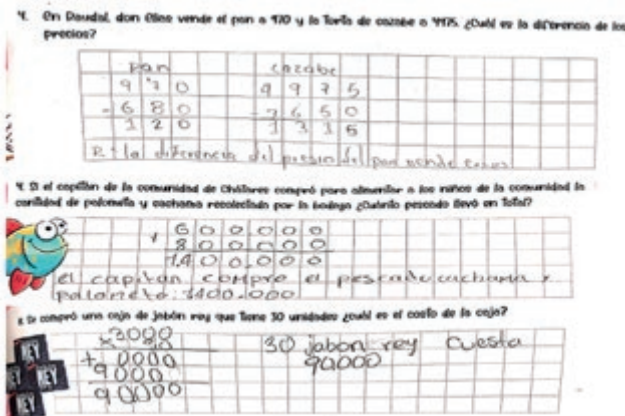 4. En Daudal, don Elías vende el pan a 970 y la Torta de cazabe a 4975. ¿Cuál es la diferencia de los
precios?
pan cazabe
970 9975
- 680 - 7650
120 1315
R = la diferencia del del pan
4. Si el capitán de la comunidad de compró para alimentar a los niños de la comunidad la
cantidad de palometa y cachama recolectada por la bodega ¿Cuánto pescado llevó en total?
+ 600000
800000
1400.000
el capitan compro el pescado cachama y
palometa: 1400.000
Se compró una caja de jabón rey que tiene 30 unidades ¿cuál es el costo de la caja?
×3000 30 jabon rey cuesta
+ 0000 90000
9000
90000
REY
REY
REY